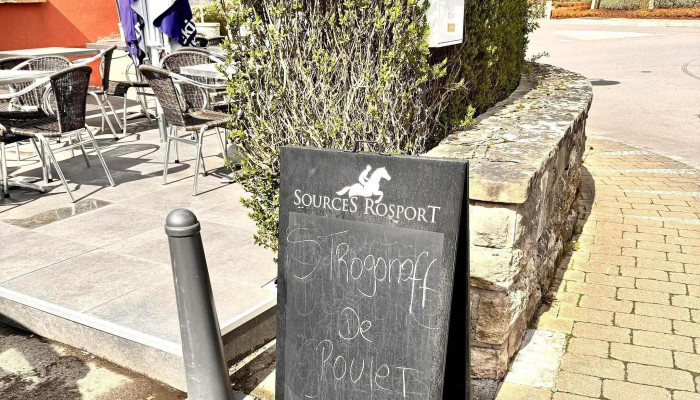 SOURCES ROSPORT
STROgonoff
De
POULET